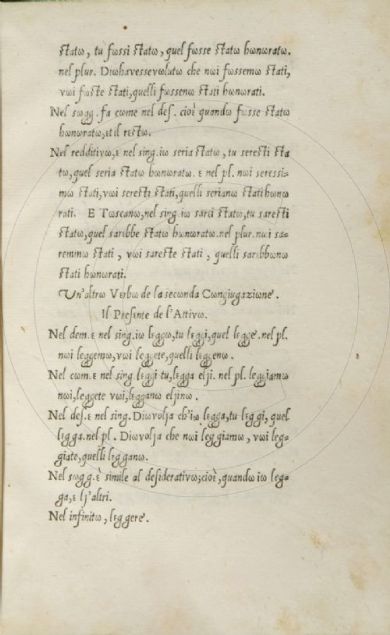 ʃtatω, tu fωssi ʃtatω, quel fωsse ʃtatω hωnωratω.
nel plur. Diωhavesse vωlutω che nωi fωssemω ʃtati,
vωi fωʃte ʃtati, quelli fωssenω ʃtati hωnωrati.
Nel sωgg. fa cωme nel deſ. ciωè quandω fωsse ʃtatω
hωnωratω, et il reʃtω.
Nel redditivω, ε nel sing. iω seria ʃtatω, tu sereʃti ʃta
tω, quel seria ʃtatω hωnωratω. ε nel pl. nωi seressi-
mω ʃtati, vωi sereʃti ʃtati, quelli serianω ʃtati hωnω
rati. E Tωscanω, nel sing. iω sarεi ʃtatω, tu sareʃti
ʃtatω, quel sarεbbe ʃtatω hωnωratω. nel plur. nωi sa-
remmω ʃtati, vωi sareʃte ʃtati, quelli sarεbbωnω
ʃtati hωnωrati.
Un'altrω Vεrbω de la secωnda Cωnjugaziωne.
Il Presεnte de l'Attivω.
Nel dem. ε nel sing. iω lεggω, tu lεggi, quel lεgge. nel pl.
nωi leggemω, vωi leggete, quelli lεggenω.
Nel cωm. ε nel sing. lεggi tu, lεgga elji. nel pl. leggiamω
nωi, leggete vωi, lεgganω eljinω.
Nel deſ. ε nel sing. Diω vωlja ch'iω lεgga, tu lεggi, quel
lεgga. nel pl. Diω vωlja che nωi leggiamω, vωi leg-
giate, quelli lεgganω.
Nel sωgg. ὲ simile al desiderativω; ciωὲ, quandω iω leg-
ga, ε lj'altri.
Nel infinitω, lεggere.